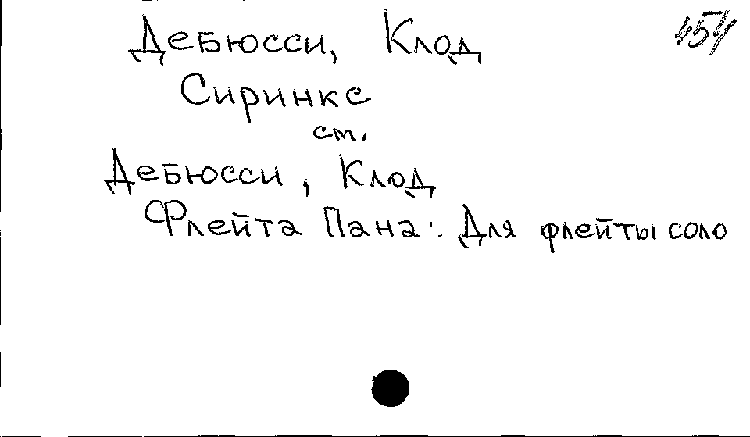 Дебюсси, Клод 454
Сиринкс
см.
Дебюсси, Клод
Флейта Пана: Для флейты соло